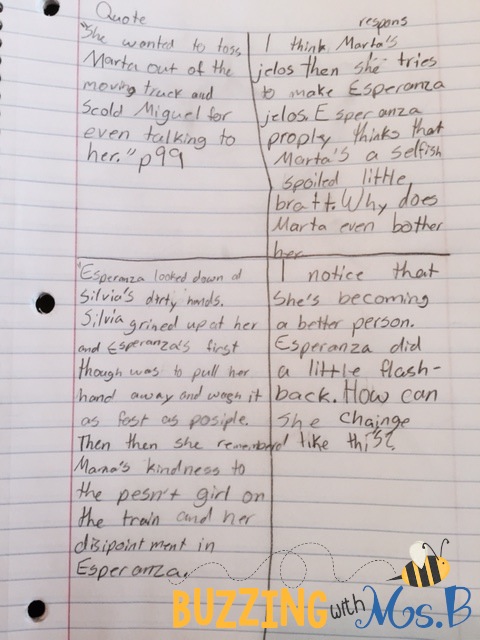 Quote
"She wanted to toss
Marta out of the
moving truck and
Scold Miguel for
even talking to
her." p99
respons
I think Marta's
jelos then she tries
to make Esperanza
jelos. Esperanza
proply thinks that
Marta's a selfish
spoiled little
bratt. Why does
Marta even bother
her
"Esperanza looked down at
Silvia's dirty hands.
Silvia grined up at her
and Esperanza's first
though was to pull her
hand away and wash it
as fast as posiple.
Then then she remembered
Mama's kindness to
the pesn't girl on
the train and her
disipointment in
Esperanza.
I notice that
She's becoming
a better person.
Esperanza did
a little flash-
back. How can
she chainge
like this?
BUZZING with Ms. B